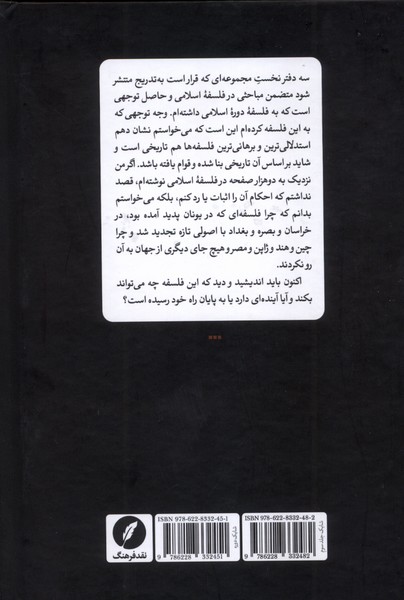 سه دفتر نخستِ مجموعه‌ای که قرار است به‌تدریج منتشر
شود متضمن مباحثی در فلسفهٔ اسلامی و حاصل توجهی
است که به فلسفهٔ دورهٔ اسلامی داشته‌ام. وجه توجهی که
به این فلسفه کرده‌ام این است که می‌خواستم نشان دهم
استدلالی‌ترین و برهانی‌ترین فلسفه‌ها هم تاریخی است و
شاید بر اساس آن تاریخی بنا شده و قوام یافته باشد. اگر من
نزدیک به دوهزار صفحه در فلسفهٔ اسلامی نوشته‌ام، قصد
نداشتم که احکام آن را اثبات یا رد کنم، بلکه می‌خواستم
بدانم که چرا فلسفه‌ای که در یونان پدید آمده بود، در
خراسان و بصره و بغداد با اصولی تازه تجدید شد و چرا
چین و هند و ژاپن و مصر و هیچ جای دیگری از جهان به آن
رو نکردند.
اکنون باید اندیشید و دید که این فلسفه چه می‌تواند
بکند و آیا آینده‌ای دارد یا به پایان راه خود رسیده است؟
نقد فرهنگ
ISBN 978-622-8332-45-1
9 786228 332451
شابک دوره
ISBN 978-622-8332-48-2
9 786228 332482
شابک جلد سوم